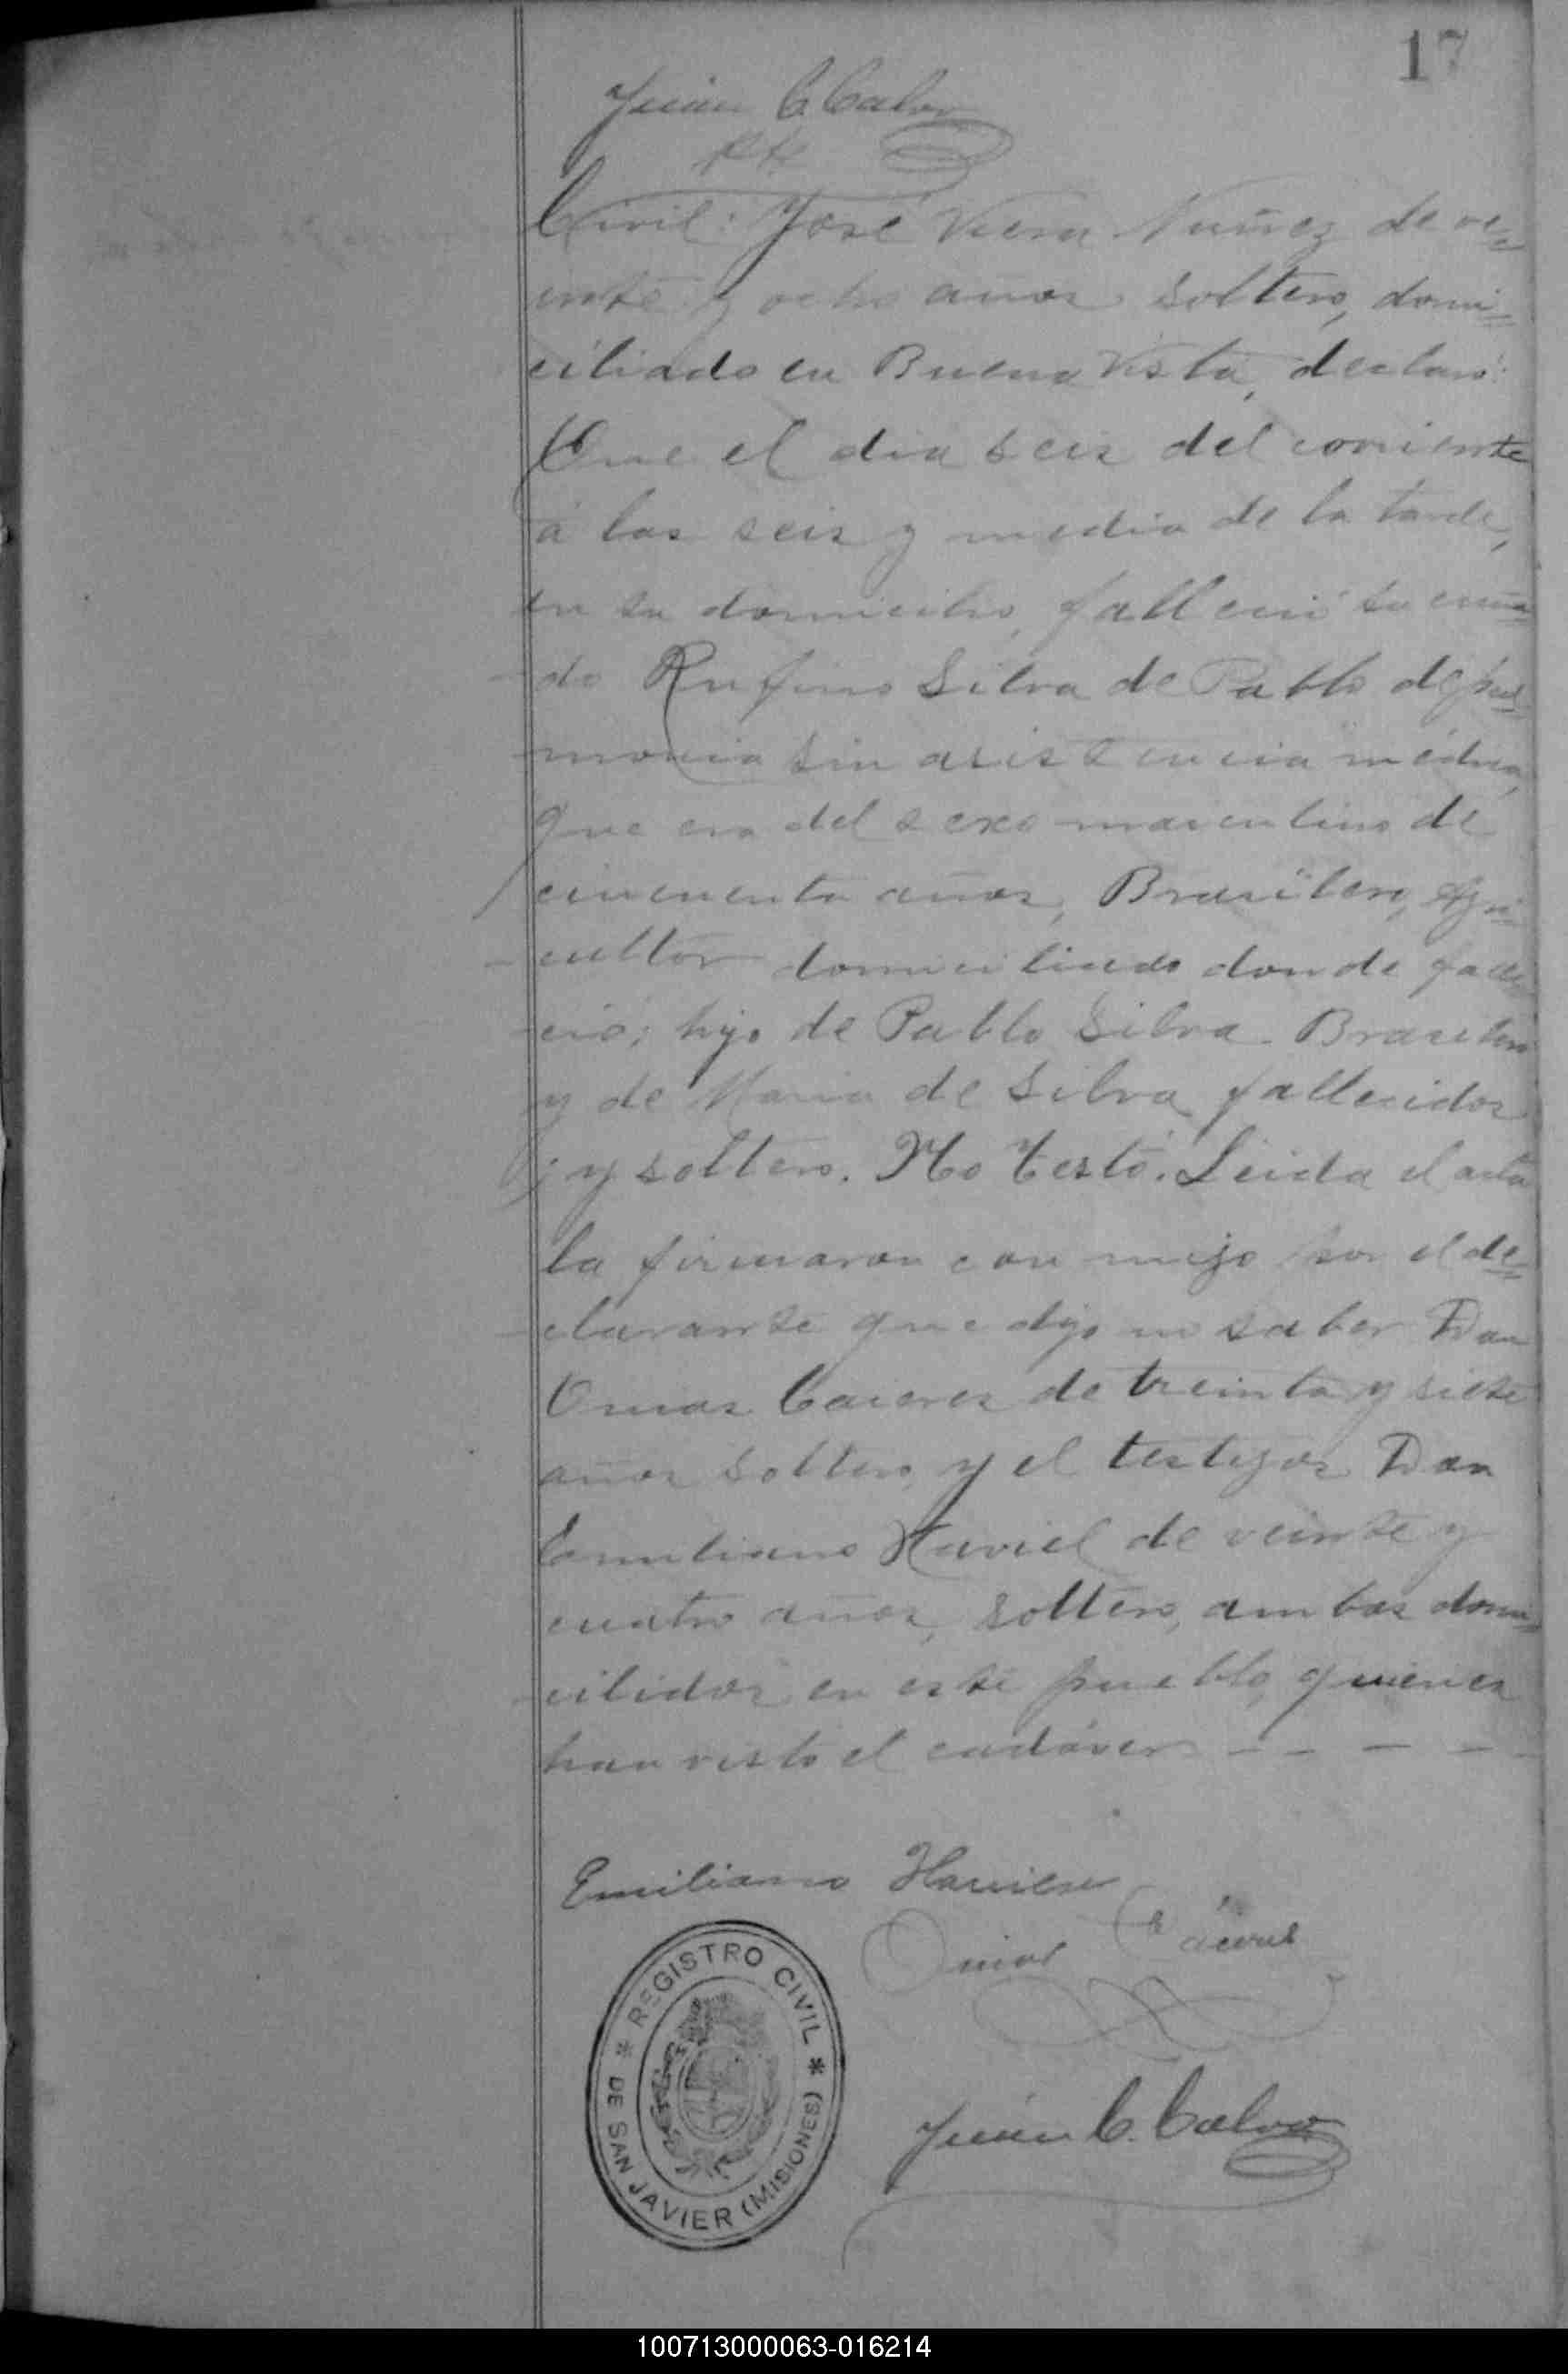 17
Juan C. Calvo
Pte
Civil: José Viera Nuñez de ve=
inte y ocho años soltero, domi=
ciliado en Buena Vista, declaró:
Que el dia seis del corriente
á las seis y media de la tarde,
en su domicilio, falleció su cuña=
do Rufino Silva de Pablo de pul=
monia sin asistencia médica,
que era del sexo masculino de
cincuenta años, Brasilero, Agri=
cultor domiciliado donde falle
ció; hijo de Pablo Silva Brasilero
y de Maria de Silva fallecidos
; y soltero. No testó. Leida el acta
la firmaron con migo por el de=
clarante que dijo no saber Don
Omar Caceres de treinta y siete
años soltero, y el testigos Don
Emiliano Haviel de veinte y
cuatro años, soltero, ambos domi=
cilidos en este pueblo, quienes
han visto el cadáver - - - -
Emiliano
Omar Cáceres
REGISTRO CIVIL
DE SAN JAVIER (MISIONES)
Juan C. Calvo
100713000063-016214